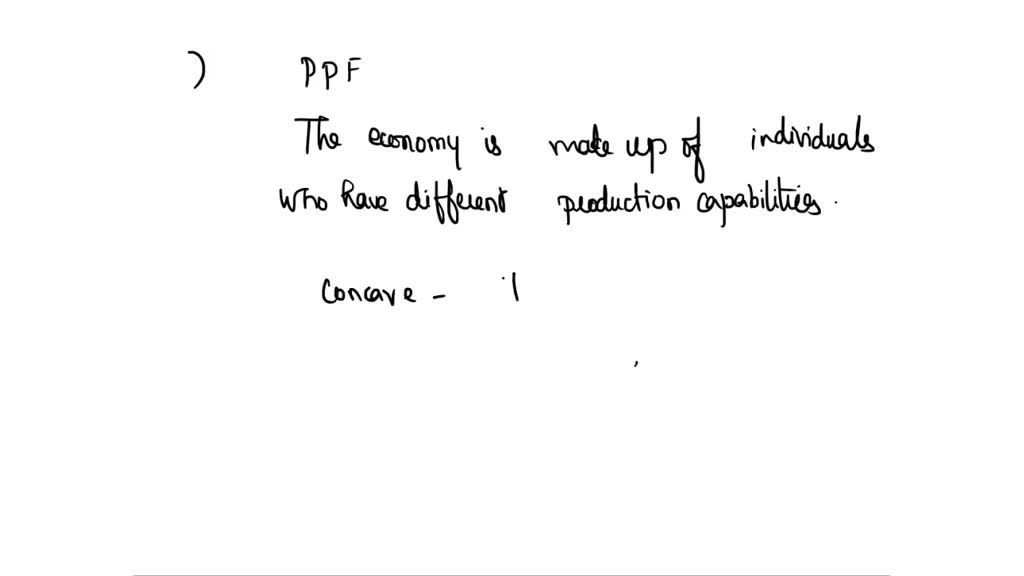 ) PPF
The economy is made up of individuals
who have different production capabilities.
Concave -